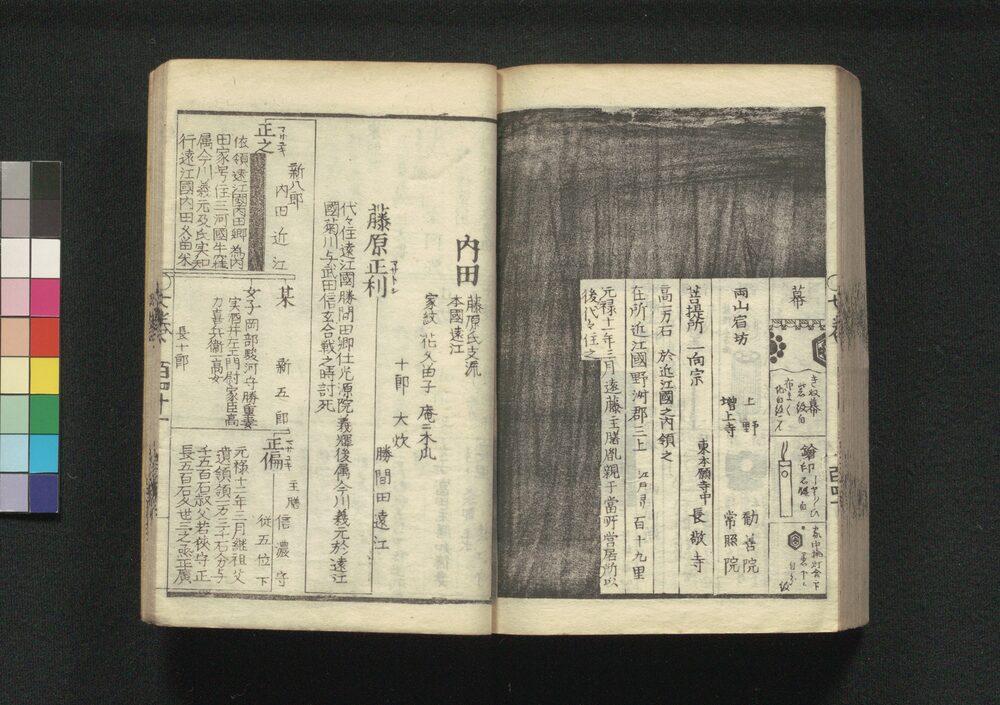 幕
き奴幕
鎗印
両山宿坊
上野
勧善院
増上寺
常照院
菩提所
一向宗
東本願寺中
長敬寺
高一万石
於近江國之内領之
在所近江國野洲郡三上
江戸ヨリ
百十九里
元禄十一年三月遠藤主膳胤親于當所営居所以
後代々住之
内田
藤原氏支流
本國遠江
家紋
花久留子
庵ニ木瓜
十郎
大炊
勝間田遠江
藤原正利
マサトシ
代々住遠江國勝間田郷仕光源院義耀後属今川義元於遠江
國菊川与武田信玄合戦之時討死
新八郎
内田近江
正之
マサユキ
依領遠江國内田郷為内
田家号住三河國牛窪
属今川義元及氏実知
行遠江國内田久苗米
某
新五郎
女子
岡部駿河守勝重妻
実酒井左エ門尉家臣高
力喜兵衛高女
長十郎
正偏
マサユキ
主膳
信濃守
従五位下
元禄十二年三月継祖父
遺領領一万三千石分与
千五百石叔父若狭守正
長五百石久世三之丞正廣